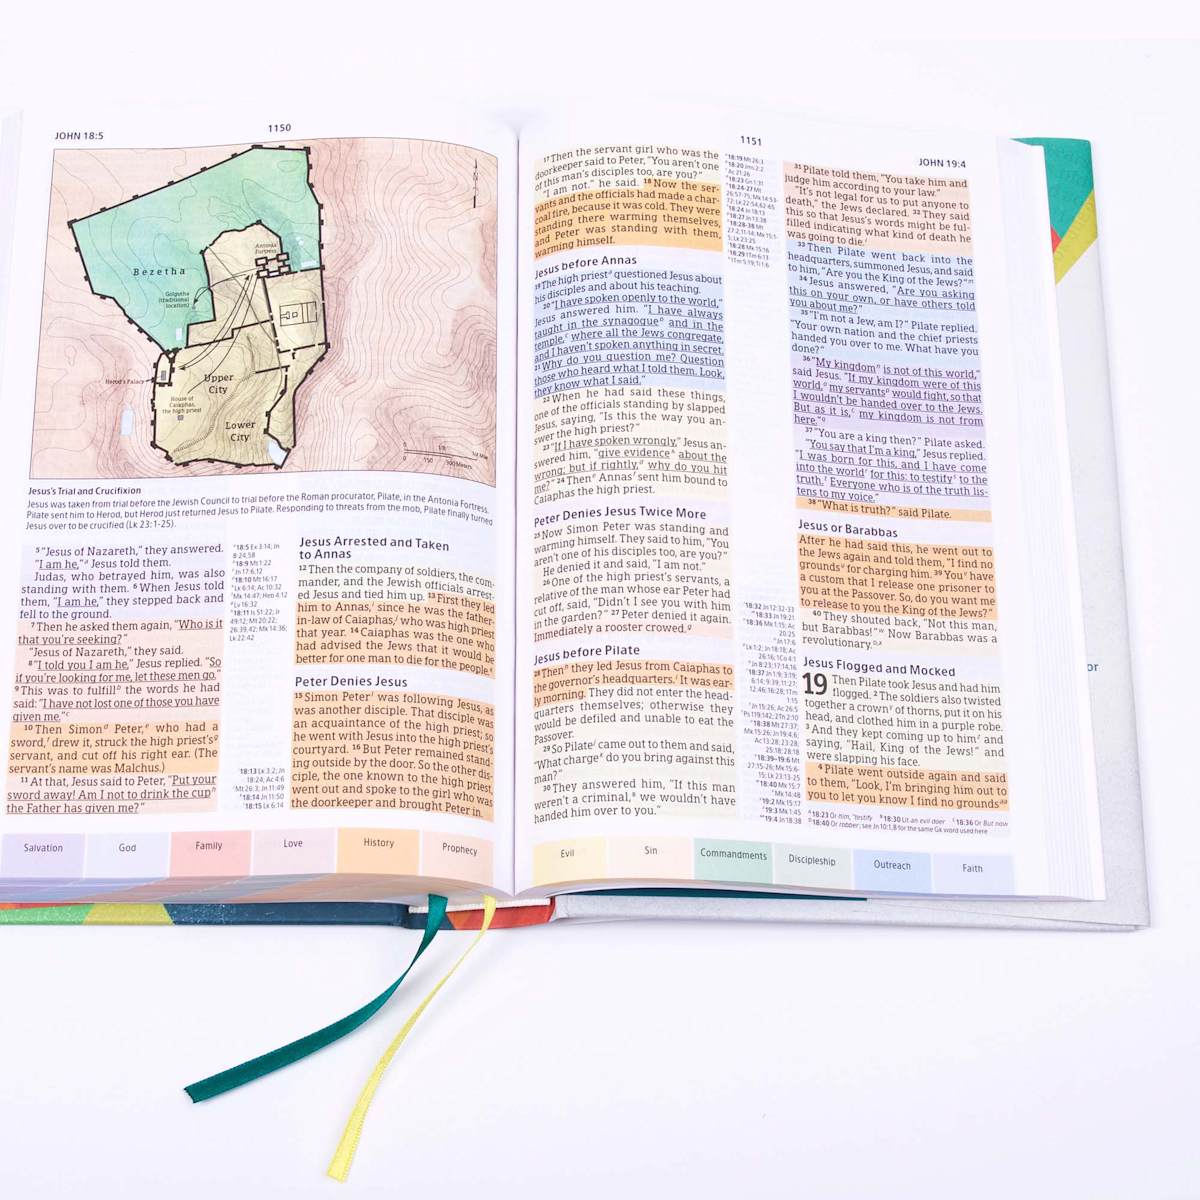 JOHN 18:5
1150
Bezetha
Antonia
Fortress
Golgotha
(traditional
location)
Herod's Palace
Upper
City
House of
Caiaphas,
the high priest
Lower
City
Jesus's Trial and Crucifixion
Jesus was taken from trial before the Jewish Council to trial before the Roman procurator, Pilate, in the Antonia Fortress.
Pilate sent him to Herod, but Herod just returned Jesus to Pilate. Responding to threats from the mob, Pilate finally turned
Jesus over to be crucified (Lk 23:1-25).
5 "Jesus of Nazareth," they answered.
"I am he," Jesus told them.
Judas, who betrayed him, was also
standing with them. 6 When Jesus told
them, "I am he," they stepped back and
fell to the ground.
7 Then he asked them again, "Who is it
that you're seeking?"
"Jesus of Nazareth," they said.
8 "I told you I am he," Jesus replied. "So
if you're looking for me, let these men go."
9 This was to fulfill the words he had
said: "I have not lost one of those you have
given me."
10 Then Simon Peter, who had a
sword, drew it, struck the high priest's
servant, and cut off his right ear. (The
servant's name was Malchus.)
11 At that, Jesus said to Peter, "Put your
sword away! Am I not to drink the cup
the Father has given me?"
Jesus Arrested and Taken
to Annas
12 Then the company of soldiers, the com-
mander, and the Jewish officials arrest-
ed Jesus and tied him up. 13 First they led
him to Annas, since he was the father-
in-law of Caiaphas, who was high priest
that year. 14 Caiaphas was the one who
had advised the Jews that it would be
better for one man to die for the people.
Peter Denies Jesus
15 Simon Peter was following Jesus, as
was another disciple. That disciple was
an acquaintance of the high priest; so
he went with Jesus into the high priest's
courtyard. 16 But Peter remained stand-
ing outside by the door. So the other dis-
ciple, the one known to the high priest,
went out and spoke to the girl who was
the doorkeeper and brought Peter in.
Salvation God Family Love History Prophecy
1151
JOHN 19:4
17 Then the servant girl who was the
doorkeeper said to Peter, "You aren't one
of this man's disciples too, are you?"
"I am not." he said. 18 Now the ser-
vants and the officials had made a char-
coal fire, because it was cold. They were
standing there warming themselves,
and Peter was standing with them,
warming himself.
Jesus before Annas
19 The high priest questioned Jesus about
his disciples and about his teaching.
20 "I have spoken openly to the world,"
Jesus answered him. "I have always
taught in the synagogue and in the
temple, where all the Jews congregate,
and I haven't spoken anything in secret.
21 Why do you question me? Question
those who heard what I told them. Look,
they know what I said."
22 When he had said these things,
one of the officials standing by slapped
Jesus, saying, "Is this the way you an-
swer the high priest?"
23 "If I have spoken wrongly," Jesus an-
swered him, "give evidence about the
wrong; but if rightly, why do you hit
me?" 24 Then Annas sent him bound to
Caiaphas the high priest.
Peter Denies Jesus Twice More
25 Now Simon Peter was standing and
warming himself. They said to him, "You
aren't one of his disciples too, are you?"
He denied it and said, "I am not."
26 One of the high priest's servants, a
relative of the man whose ear Peter had
cut off, said, "Didn't I see you with him
in the garden?" 27 Peter denied it again.
Immediately a rooster crowed.
Jesus before Pilate
28 Then they led Jesus from Caiaphas to
the governor's headquarters. It was ear-
ly morning. They did not enter the head-
quarters themselves; otherwise they
would be defiled and unable to eat the
Passover.
29 So Pilate came out to them and said,
"What charge do you bring against this
man?"
30 They answered him, "If this man
weren't a criminal, we wouldn't have
handed him over to you."
31 Pilate told them, "You take him and
judge him according to your law."
"It's not legal for us to put anyone to
death," the Jews declared. 32 They said
this so that Jesus's words might be ful-
filled indicating what kind of death he
was going to die.
33 Then Pilate went back into the
headquarters, summoned Jesus, and said
to him, "Are you the King of the Jews?"
34 Jesus answered, "Are you asking
this on your own, or have others told
you about me?"
35 "I'm not a Jew, am I?" Pilate replied.
"Your own nation and the chief priests
handed you over to me. What have you
done?"
36 "My kingdom is not of this world,"
said Jesus. "If my kingdom were of this
world, my servants would fight, so that
I wouldn't be handed over to the Jews.
But as it is, my kingdom is not from
here."
37 "You are a king then?" Pilate asked.
"You say that I'm a king," Jesus replied.
"I was born for this, and I have come
into the world for this: to testify to the
truth. Everyone who is of the truth lis-
tens to my voice."
38 "What is truth?" said Pilate.
Jesus or Barabbas
After he had said this, he went out to
the Jews again and told them, "I find no
grounds for charging him. 39 You have
a custom that I release one prisoner to
you at the Passover. So, do you want me
to release to you the King of the Jews?"
40 They shouted back, "Not this man,
but Barabbas!" Now Barabbas was a
revolutionary.
Jesus Flogged and Mocked
19 Then Pilate took Jesus and had him
flogged. 2 The soldiers also twisted
together a crown of thorns, put it on his
head, and clothed him in a purple robe.
3 And they kept coming up to him and
saying, "Hail, King of the Jews!" and
were slapping his face.
4 Pilate went outside again and said
to them, "Look, I'm bringing him out to
you to let you know I find no grounds
Evil Sin Commandments Discipleship Outreach Faith
or